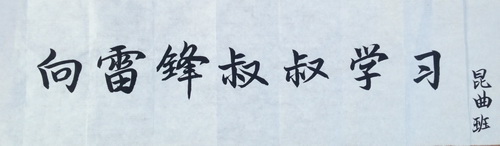 向雷锋叔叔学习
昆曲班